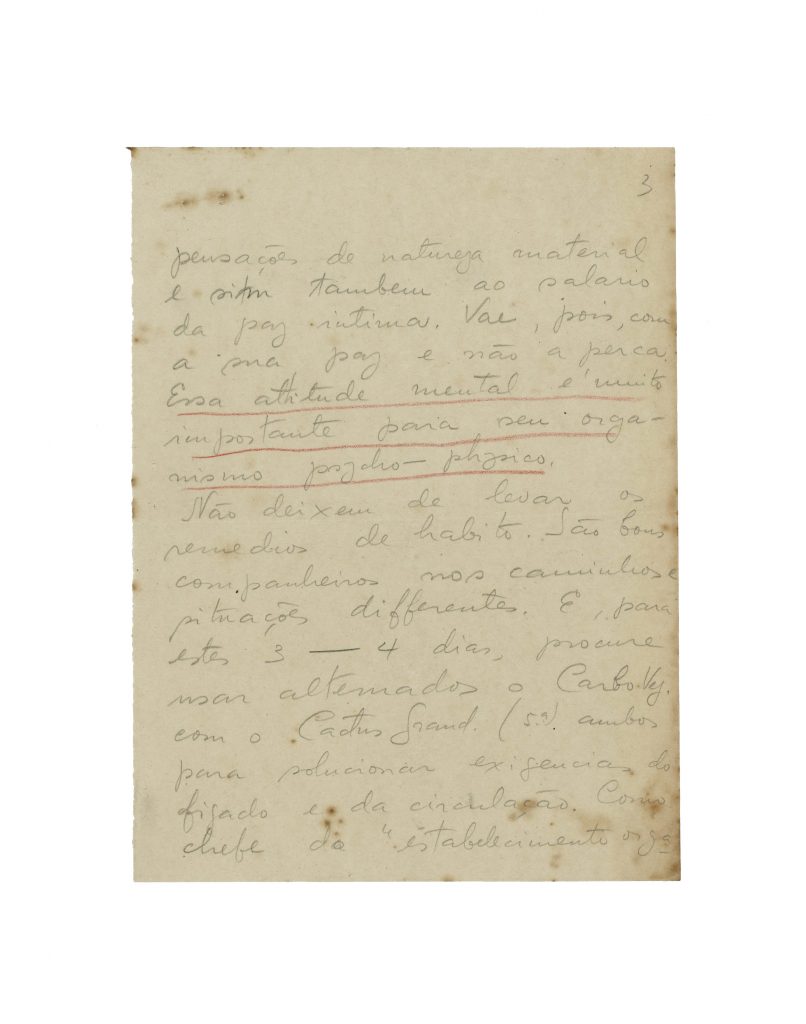 3
pensações de natureza material
e sim tambem ao salario
da paz intima. Vae, pois, com
a sua paz e não a perca.
Essa attitude mental é muito
importante para seu orga-
nismo psycho-physico.
Não deixem de levar os
remedios de habito. São bons
companheiros nos caminhos e
situações differentes. E, para
estes 3 — 4 dias, procure
usar alternados o Carbo Veg.
com o Cactus Grand. (5ª) ambos
para solucionar exigencias do
figado e da circulação. Como
chefe do "estabelecimento orga